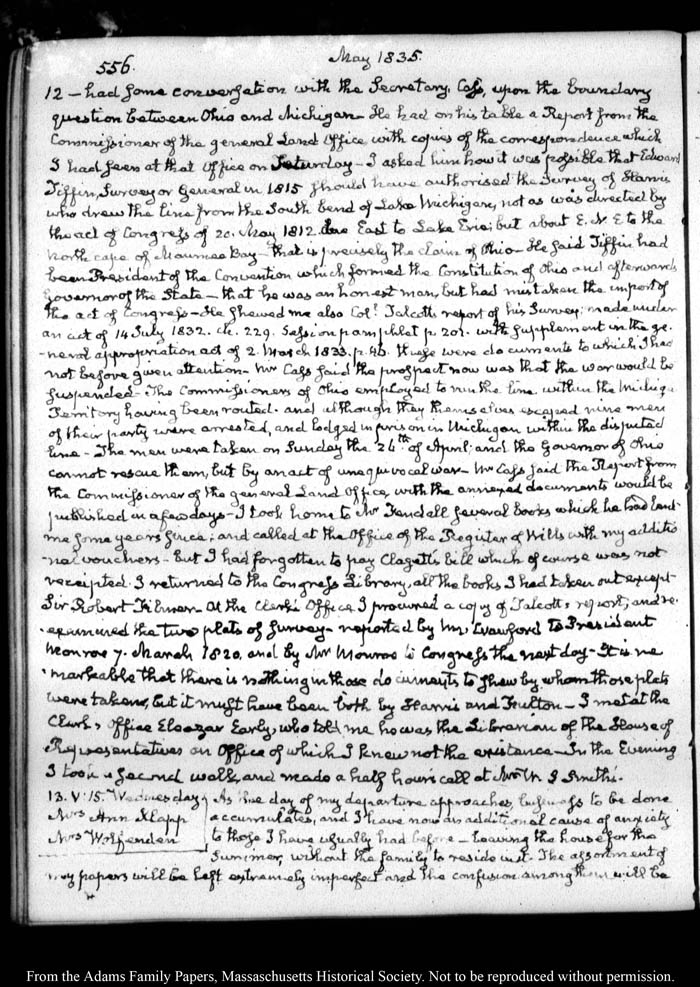 556.
May 1835.
12 — had some conversation with the Secretary, Cass, upon the boundary
question between Ohio and Michigan — He had on his table a Report from the
Commissioner of the general Land Office with copies of the correspondence which
I had seen at that Office on Saturday — I asked him how it was possible that Edward
Tiffin, Surveyor General in 1815 should have authorised the Survey of Harris
who drew the line from the South bend of Lake Michigan, not as was directed by
the act of Congress of 20. May 1812. due East to Lake Erie; but about E. N. E to the
north cape of Maumee Bay — that is precisely the claim of Ohio — He said Tiffin had
been President of the Convention which formed the Constitution of Ohio and afterwards
Governor of the State — that he was an honest man, but had mistaken the import of
the act of Congress — He shewed me also Col.l Talcott's report of his Survey; made under
an act of 14 July 1832. ch. 229. Session pamphlet p. 201. with supplement in the ge-
-neral appropriation act of 2. March 1833. p. 45. these were documents to which I had
not before given attention — Mr Cass said the prospect now was that the war would be
suspended — The Commissioners of Ohio employed to run the line within the Michigan
Territory having been routed. and although they themselves escaped nine men
of their party were arrested, and lodged in prison in Michigan within the disputed
line — The men were taken on Sunday the 26th of April; and the Governor of Ohio
cannot rescue them, but by an act of unequivocal war — Mr Cass said the Report from
the Commissioner of the general Land Office, with the annexed documents would be
published in a few days — I took home to Mr Kendall several books which he had lent
me some years since; and called at the Office of the Register of Wills with my additio
-nal vouchers — but I had forgotten to pay Clagett's bill which of course was not
receipted. I returned to the Congress Library, all the books I had taken out except
Sir Robert Filmer — At the Clerk's Office I procured a copy of Talcott's report; and re-
-examined the two plats of survey — reported by Mr. Crawford to President
Monroe 7. March 1820. and by Mr Monroe to Congress the next day — It is re
-markable that there is nothing in those documents to shew by whom those plats
were taken, but it must have been both by Harris and Fulton — I met at the
Clerk's Office Eleazar Early, who told me he was the Librarian of the House of
Representatives an Office of which I knew not the existence — In the Evening
I took a second walk, and made a half hour's call at Mrs W. S Smith's.
13. V. 15. Wednesday
Mrs Ann Klapp
Mrs Wolfenden
As the day of my departure approaches, business to be done
accumulates, and I have now an additional cause of anxiety
to those I have usually had before — Leaving the house for the
Summer, without the family to reside in it — The assortment of
my papers will be left extremely imperfect and the confusion among them will be
From the Adams Family Papers, Massachusetts Historical Society. Not to be reproduced without permission.